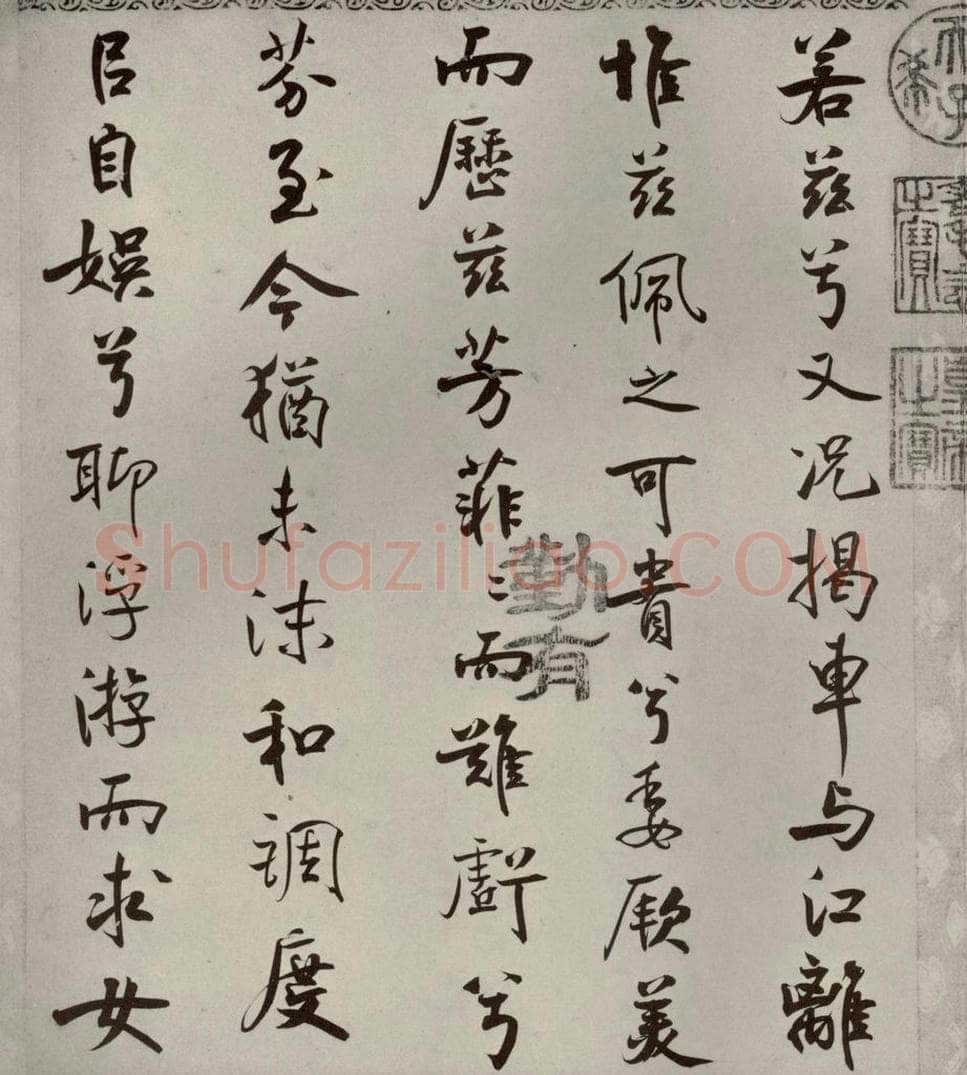 若茲兮又況揭車与江離
惟茲佩之可貴兮委厥美
而歷茲芳菲〻而難虧兮
芬至今猶未沬和調度
㠯自娛兮聊浮游而求女
勤有
Shufaziliao.COM